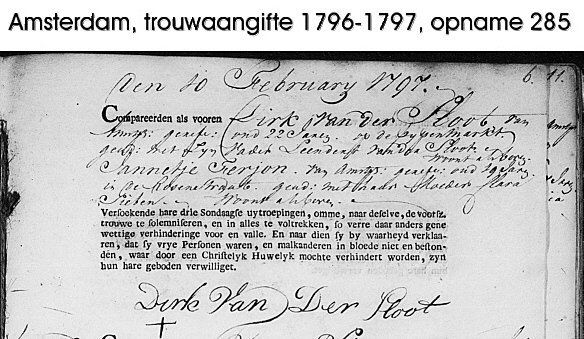 Amsterdam, trouwaangifte 1796-1797, opname 285
den 10 February 1797.
6. 11.
Compareerden als vooren Dirk Van der Sloot van
Amst: geref: oud 22 Jaren op de
geads: met Zyn Vader Leendert van der Sloot
Woont als boven
Jannetje Van Amst: geref: oud
in de geads: met haar Moeder Clara
Woont als boven.
Verzoekende hare drie Sondaagse uytroepingen, omme, naar deselve, de voorsz.
trouwe te solemniseren, en in alles te voltrekken, so verre daar anders gene
wettige verhinderinge voor en valle. En naar dien sy by waarheyd verklaa-
ren, dat sy vrye Personen waren, en malkanderen in bloede niet en beston-
den, waar door een Christelyk Huwelyk mochte verhindert worden, zyn
hun hare geboden verwilliget.
Dirk Van Der Sloot